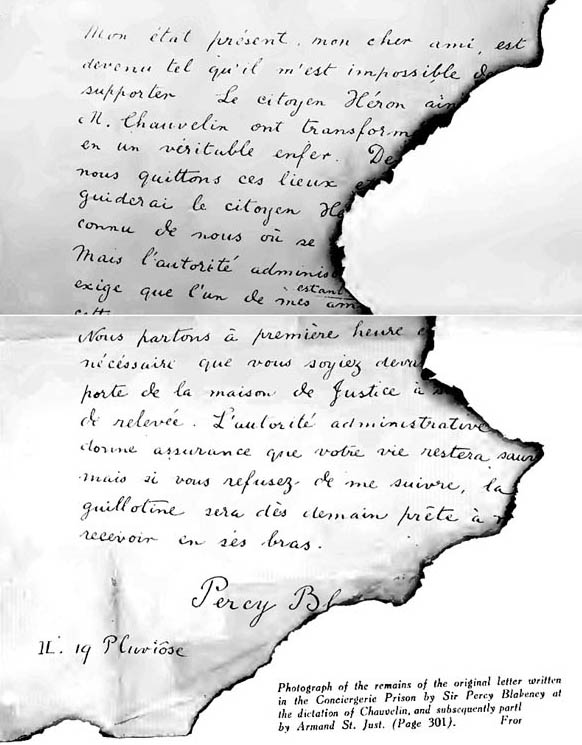 Mon état présent, mon cher ami, est
devenu tel qu'il m'est impossible de
supporter Le citoyen Héron ain
M. Chauvelin ont transform
en un véritable enfer. De
nous quittons ces lieux e
guiderai le citoyen Hé
connu de nous où se
Mais l'autorité adminis
estant
exige que l'un de mès am
Nous partons à première heure
nécéssaire que vous soyiez deva
porte de la maison de Justice à
de relevée. L'autorité administrative
donne assurance que votre vie restera sauv
mais si vous refusez de me suivre, la
guillotine sera dès demain prête à
recevoir en ses bras.
Percy Bl
II. 19 Pluviôse
Photograph of the remains of the original letter written
in the Conciergerie Prison by Sir Percy Blakeney at
the dictation of Chauvelin, and subsequently partl
by Armand St. Just. (Page 301). Fror